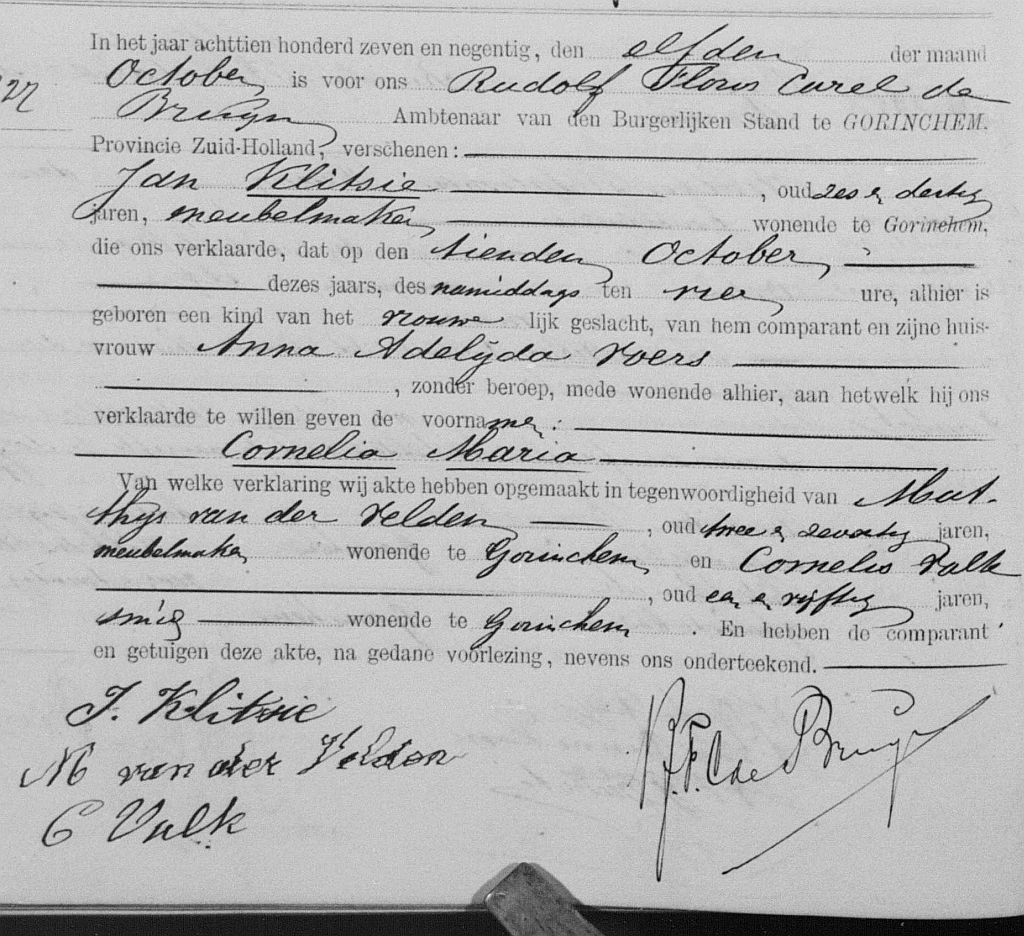 In het jaar achttien honderd zeven en negentig, den elfden der maand
October, is voor ons Rudolf Floris Carel de
Bruijn, Ambtenaar van den Burgerlijken Stand te GORINCHEM,
Provincie Zuid-Holland, verschenen:
Jan Klitsie, oud zes en dertig
jaren, meubelmaker, wonende te Gorinchem,
die ons verklaarde, dat op den tienden October,
dezes jaars, des namiddags ten vier, ure, alhier is
geboren een kind van het vrouwelijk geslacht, van hem comparant en zijne huis-
vrouw Anna Adelijda Voers
, zonder beroep, mede wonende alhier, aan hetwelk hij ons
verklaarde te willen geven de voornamen:
Cornelia Maria
Van welke verklaring wij akte hebben opgemaakt in tegenwoordigheid van Mat-
thijs van der Velden, oud twee en zeventig jaren,
meubelmaker wonende te Gorinchem, en Cornelis Valk
, oud een en vijftig jaren,
smid wonende te Gorinchem. En hebben de comparant
en getuigen deze akte, na gedane voorlezing, nevens ons onderteekend.
J. Klitsie
M van der Velden
C Valk
R.F.C de Bruijn